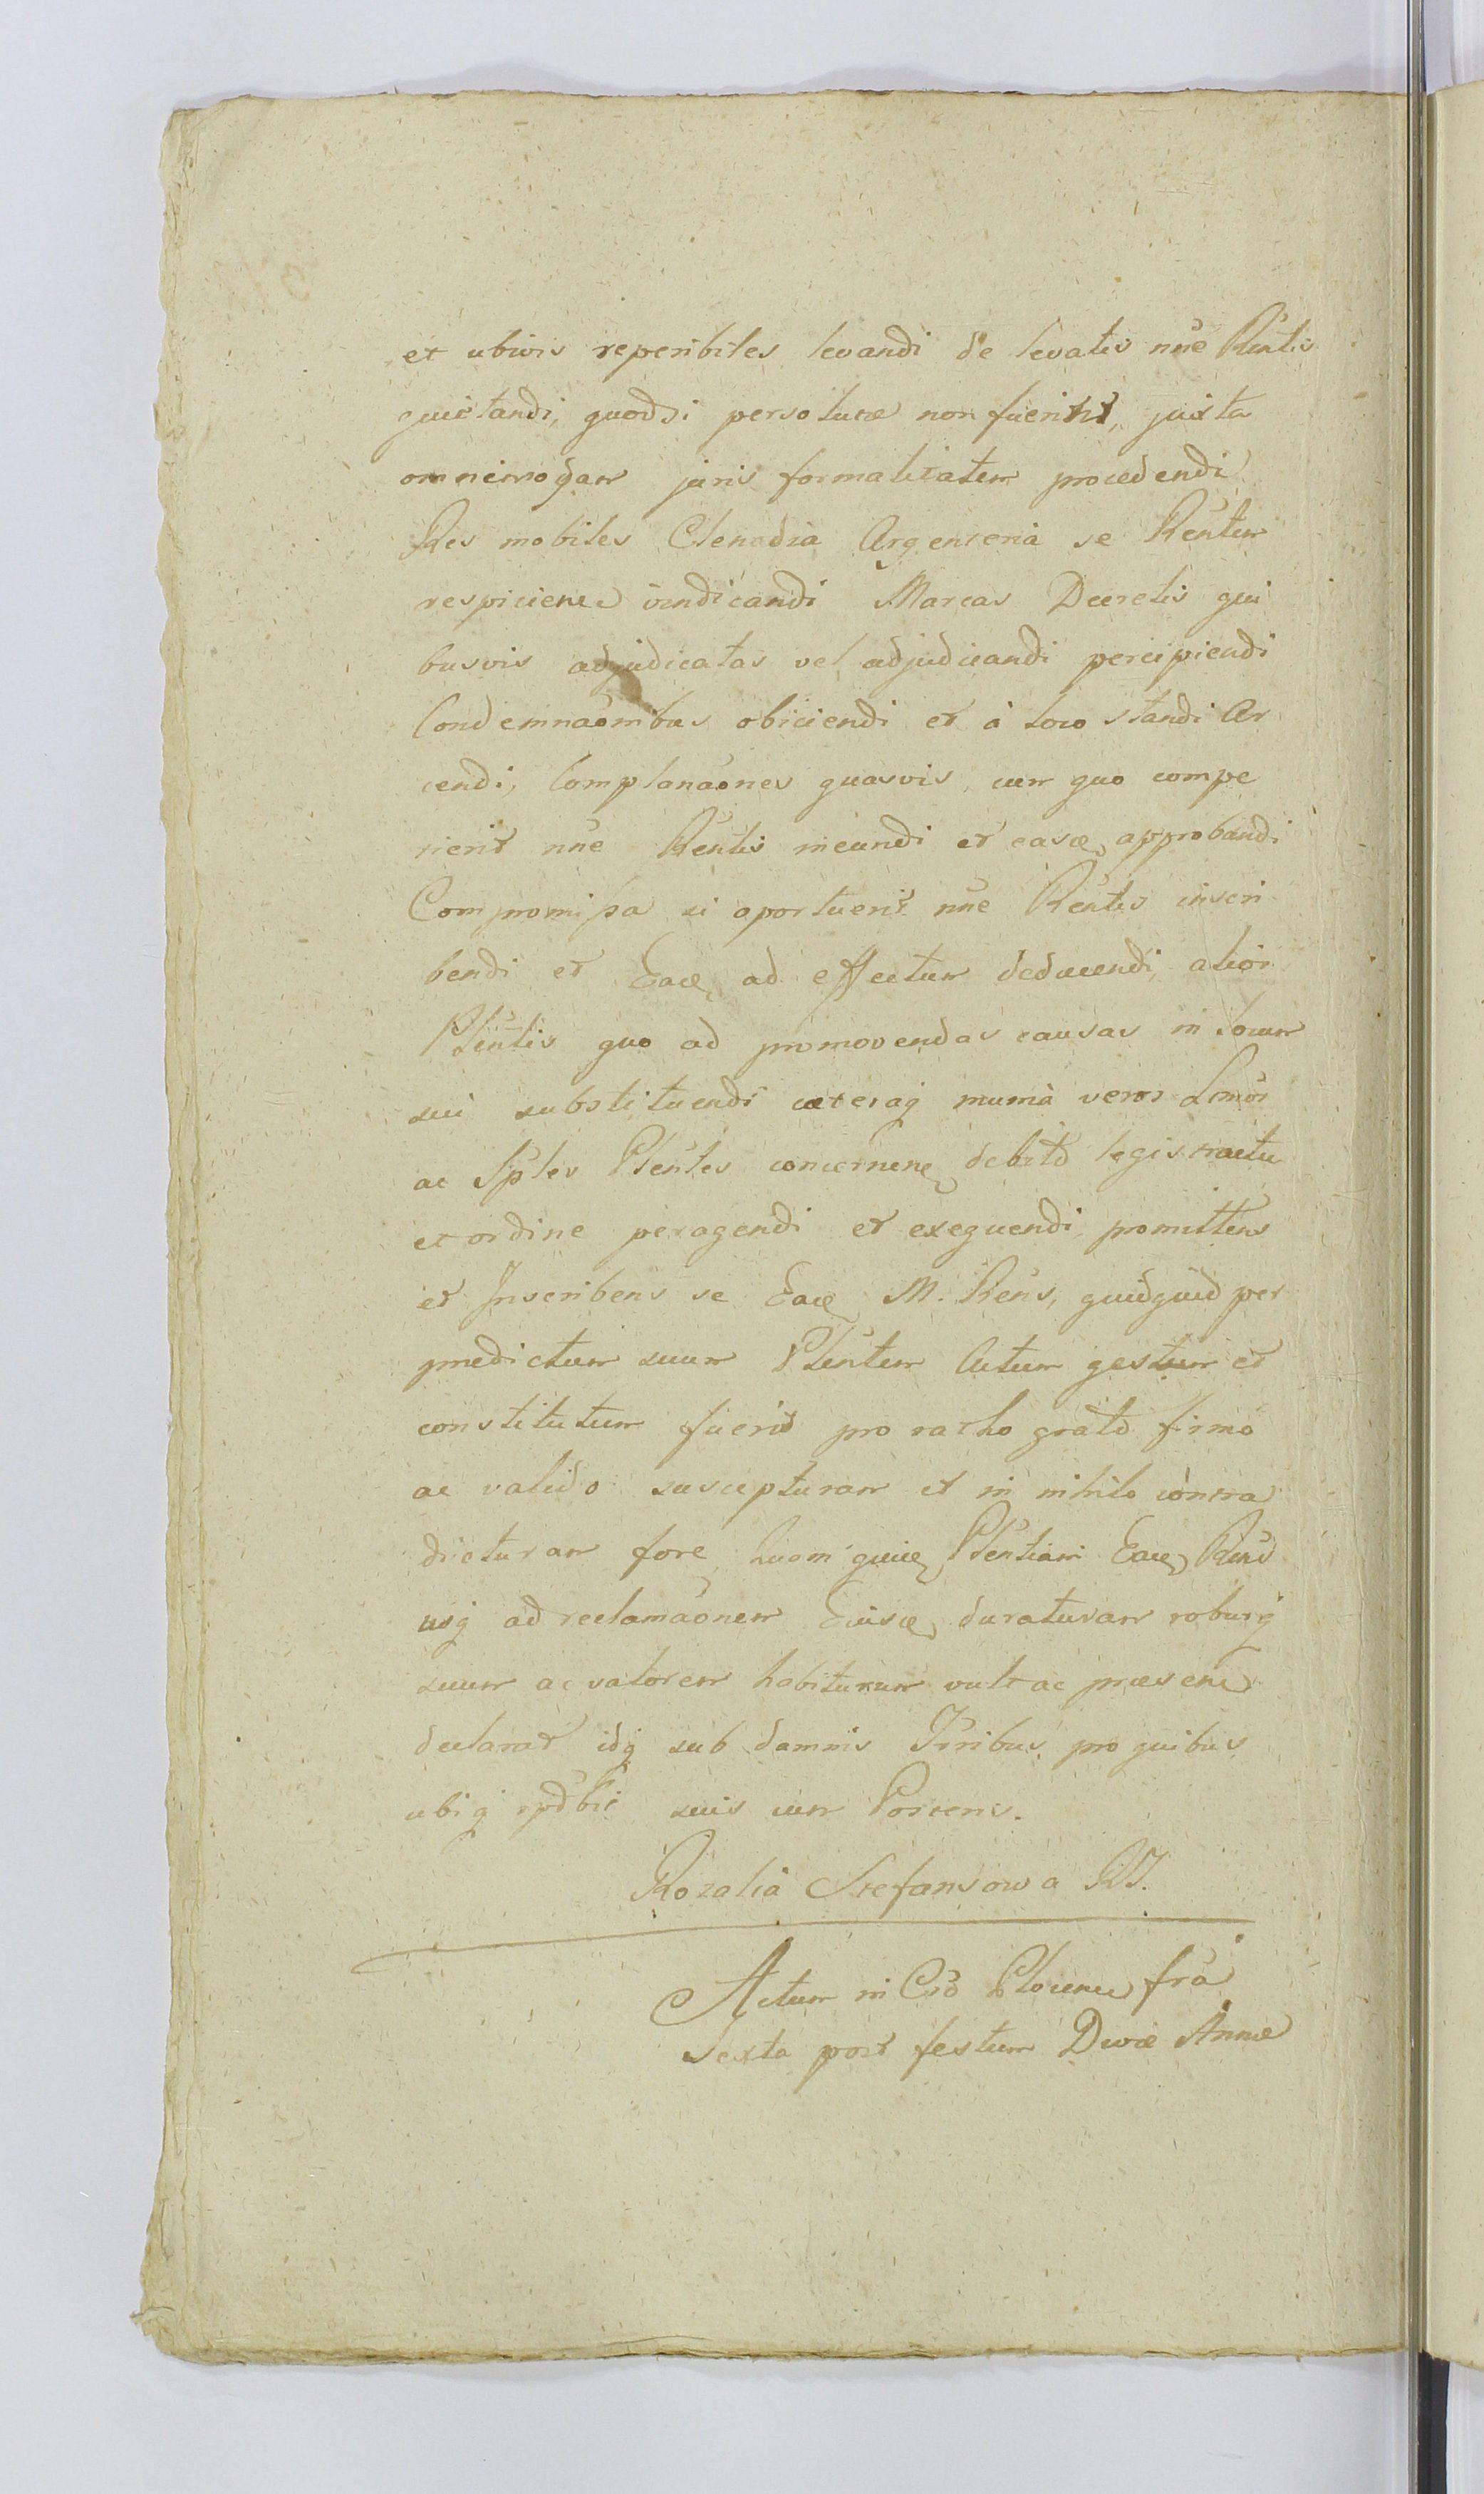 et ubivis reperibiles levandi de levatis nñe Rẽntis
quietandi, quodsi persolutæ non fuerint, juxta
omnimodam juris formalitatem procedendi
Res mobiles Clenodia Argenteria se Rẽntem
respicien̄ vindicandi Marcas Decretis qui
busvis adjudicatas vel adjudicandi percipiendi
Condemnaõnibus obiiciendi et à loco standi Ar
cendi, Complanaõnes quasvis, cum quo compe
rierit nñe Rẽntis ineundi et easꝙ approbandi
Compromissa si oportuerit nñe Rẽntis inscri
bendi et Eaꝙ ad effectum deducendi, alior
Plẽntis quo ad promovendas causas in locum
sui substituendi cæteraq munia veror Lmõr
ac Sples Plẽntes concernen̄ debito legis tractu
et ordine peragendi et exequendi, promittens
et Inscribens se Eaꝙ M. Rẽns, quidquid per
prædictum suum Plẽntem Actum gestum et
constitutum fuerit pro ratho grato firmo
ac valido suscepturam et in nihilo contra
dicturam fore, Plẽntiam Eaꝙ Rẽns
usq ad reclamaõnem Eiusꝙ duraturam roburq
suum ac valorem habituram vult ac præsen̄
declarat idq sub damnis Trribus, pro quibus
ubiq rpdbit suis cum
Rozalia Stefansowa RJ.
Actum in Crõ Plocen̄ frã
Sexta post festum Divæ Annæ